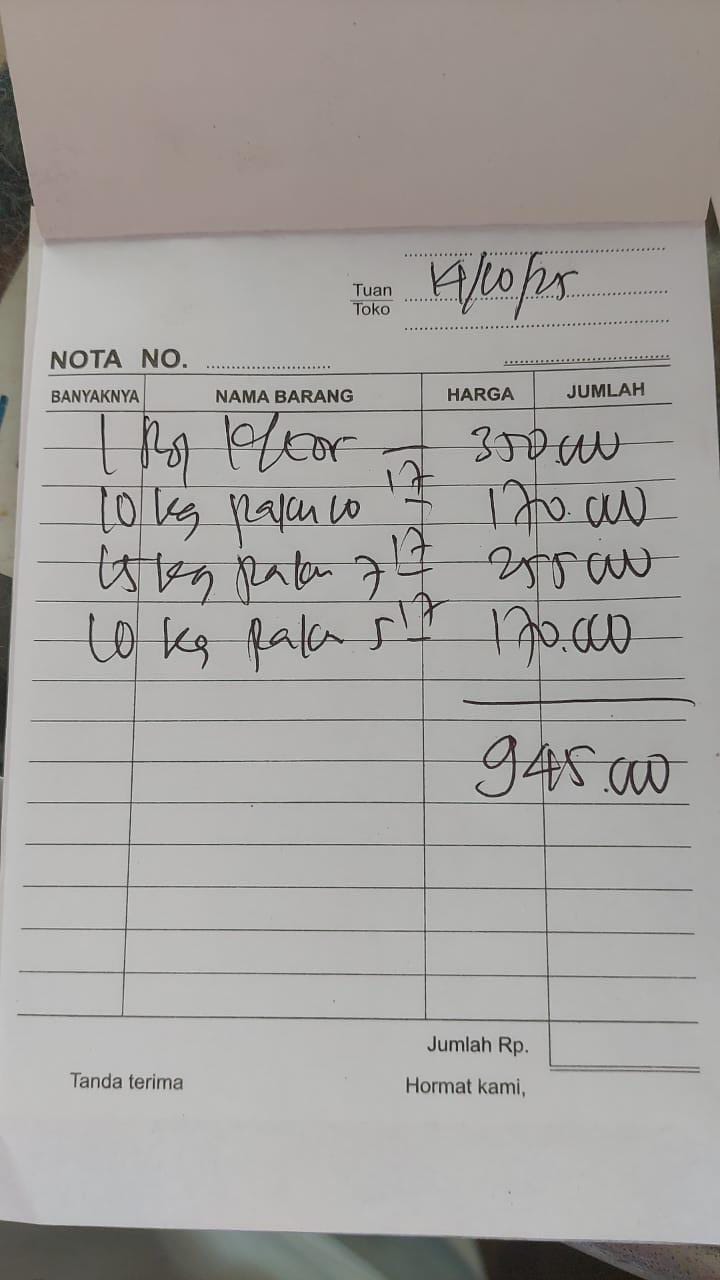 Tuan
Toko
14/10/25
NOTA NO.
BANYAKNYA NAMA BARANG HARGA JUMLAH
1 350.000
10 kg paku 10 17 170.000
15 kg paku 7 17 255.000
10 kg paku 5 17 170.000
945.000
Jumlah Rp.
Tanda terima Hormat kami,